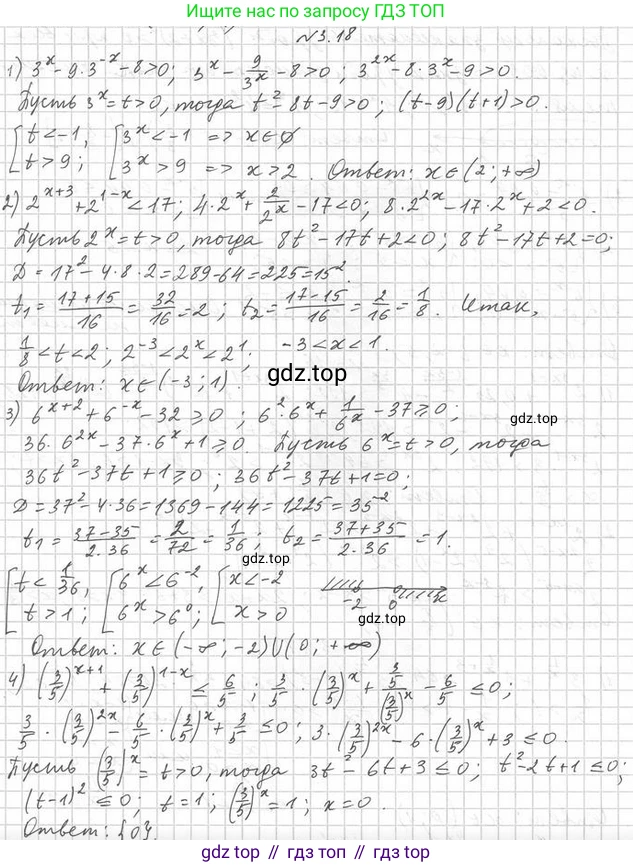 Ищите нас по запросу ГДЗ ТОП
N3.18
1) 3^x - 9·3^-x - 8>0; 3^x - 9/3^x - 8>0; 3^2x - 8·3^x - 9>0.
Пусть 3^x = t>0, тогда t^2 - 8t - 9>0; (t-9)(t+1)>0.
[t<-1, [3^x<-1 => x∈∅
[t>9; [3^x>9 => x>2. Ответ: x∈(2;+∞)
2) 2^x+3 + 2^1-x <17; 4·2^x + 2/2^x - 17<0; 8·2^2x - 17·2^x + 2<0.
Пусть 2^x = t>0, тогда 8t^2 - 17t + 2<0; 8t^2 - 17t + 2=0;
D = 17^2 - 4·8·2 = 289 - 64 = 225 = 15^2.
t1 = 17+15/16 = 32/16 = 2; t2 = 17-15/16 = 2/16 = 1/8. Итак,
1/8<t<2; 2^-3<2^x<2^1; -3<x<1.
Ответ: x∈(-3;1).
gdz.top
3) 6^x+2 + 6^-x - 32 ≥ 0; 6^2·6^x + 1/6^x - 37 ≥ 0;
gdz.top
36·6^2x - 37·6^x + 1 ≥ 0. Пусть 6^x = t>0, тогда
36t^2 - 37t + 1 ≥ 0; 36t^2 - 37t + 1=0;
D = 37^2 - 4·36 = 1369 - 144 = 1225 = 35^2
t1 = 37-35/2·36 = 2/72 = 1/36; t2 = 37+35/2·36 = 1.
gdz.top
[t<1/36, [6^x<6^-2, [x<-2
[t>1; [6^x>6^0; [x>0
-2 0 x
gdz.top
Ответ: x∈(-∞;-2)∪(0;+∞)
4) (3/5)^x+1 + (3/5)^1-x ≤ 6/5; 3/5·(3/5)^x + 3/5/(3/5)^x - 6/5 ≤ 0;
3/5·(3/5)^2x - 6/5·(3/5)^x + 3/5 ≤ 0; 3·(3/5)^2x - 6·(3/5)^x + 3 ≤ 0.
Пусть (3/5)^x = t>0, тогда 3t^2 - 6t + 3 ≤ 0; t^2 - 2t + 1 ≤ 0;
(t-1)^2 ≤ 0; t=1; (3/5)^x = 1; x=0.
Ответ: {0}.
gdz.top // gdz.top // gdz.top